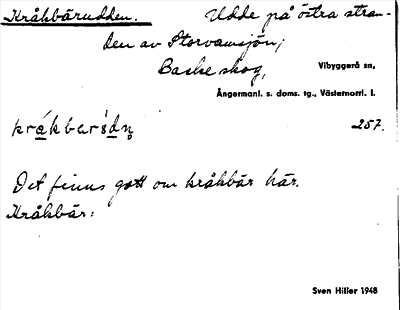 Kråkbärudden. Udde på östra stran-
den av Storvamsjön;
Baske skog, Vibyggerå sn,
Ångermanl. s. doms. tg., Västernorrl. l.
kråkbarsdn 257.
Det finns gott om kråkbär här.
Kråkbär:
Sven Hiller 1948